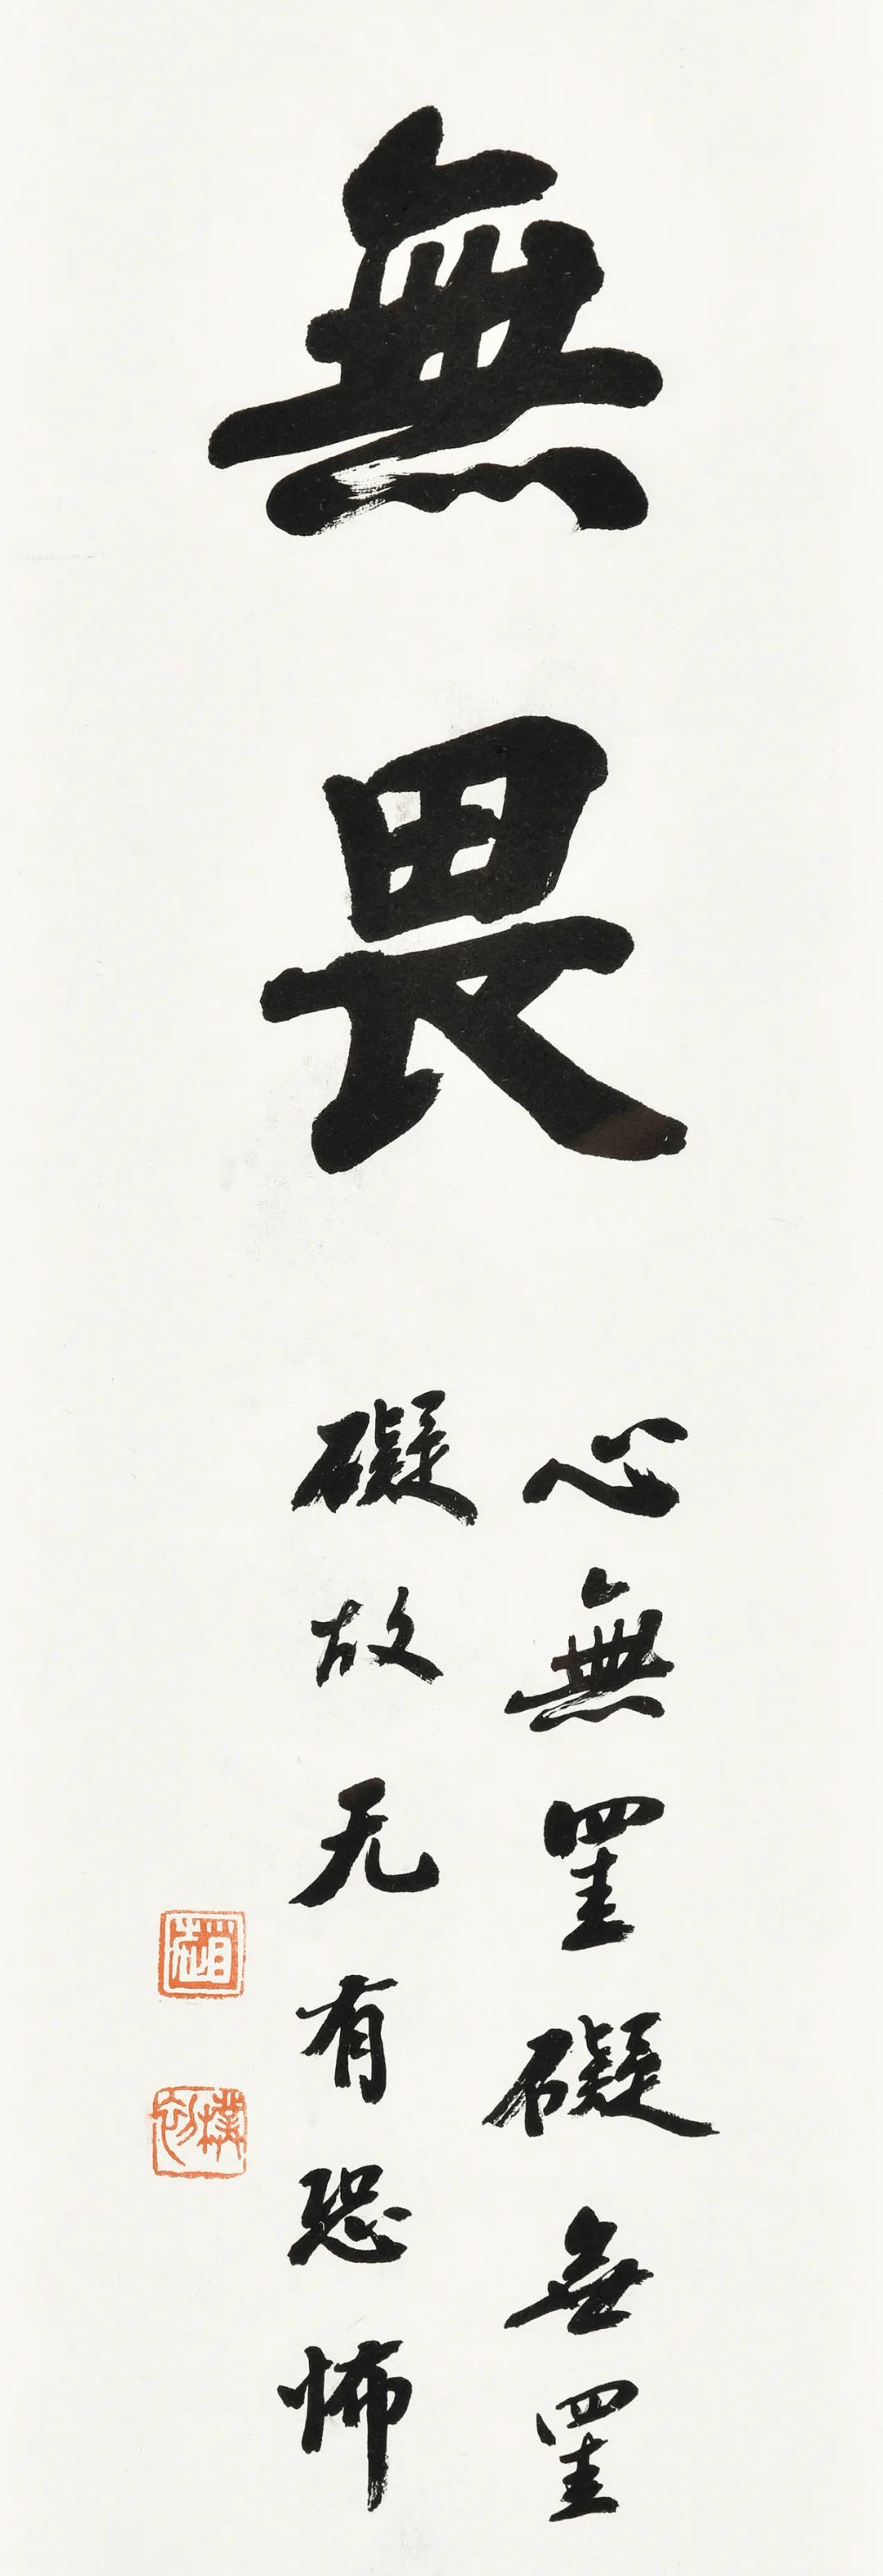 無畏
心無罣礙無罣
礙故无有恐怖
趙
樸初